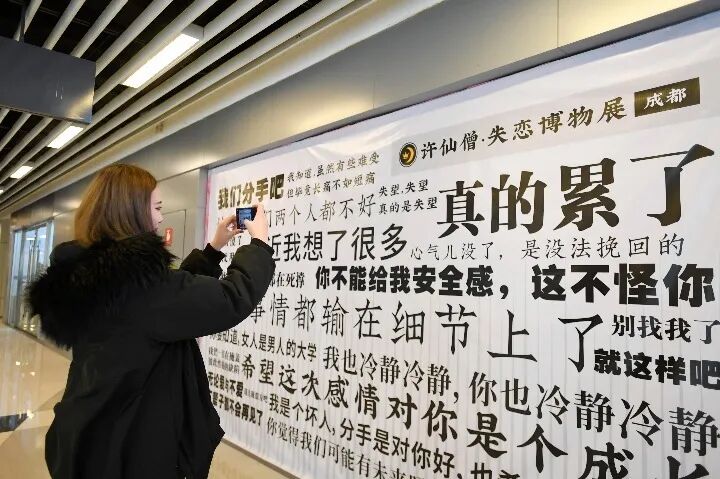 许仙僧·失恋博物展 成都
我们分手吧
我知道,虽然有些难受
但毕竟长痛不如短痛
失望,失望
真的是失望
真的累了
们两个人都不好
近我想了很多
心气儿没了,是没法挽回的
都在死撑
你不能给我安全感,这不怪你
事情都输在细节上了
别找我了
就这样吧
知道,女人是男人的大学
我也冷静冷静,你也冷静冷静
希望这次感情对你是个成长
我是个坏人,分手是对你好,
你觉得我们可能有未来